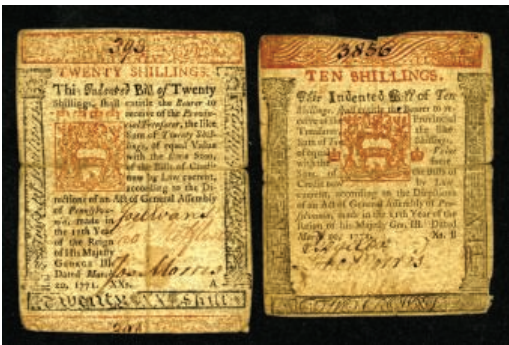 393
TWENTY SHILLINGS.
This Indented Bill of Twenty
Shillings, shall entitle the Bearer to
receive of the Provin-
cial Treasurer, the like
Sum of Twenty Shil-
lings, of equal Value
with the same Sum,
of the Bills of Credit
now by Law current,
according to the Di-
rections of an Act of General Assembly
of Pennsylva-
nia, made in
the 11th Year
of the Reign
of His Majesty
GEORGE III.
Dated Mar.
20, 1771. XXs. A
Joel Evans
Jos. Morris
Twenty XX Shill
3856
TEN SHILLINGS.
This Indented Bill of Ten
Shillings, shall entitle the Bearer to re-
ceive of the Provincial
Treasurer the like
Sum of Ten
of equal
Sum, of the Bills of
Credit now Law
current, according to the Directions
of an Act of General Assembly of Penn-
sylvania, made in the 11th Year of the
Reign of His Majesty Geo. III. Dated
March 20, 1771. Xs. B
Morris